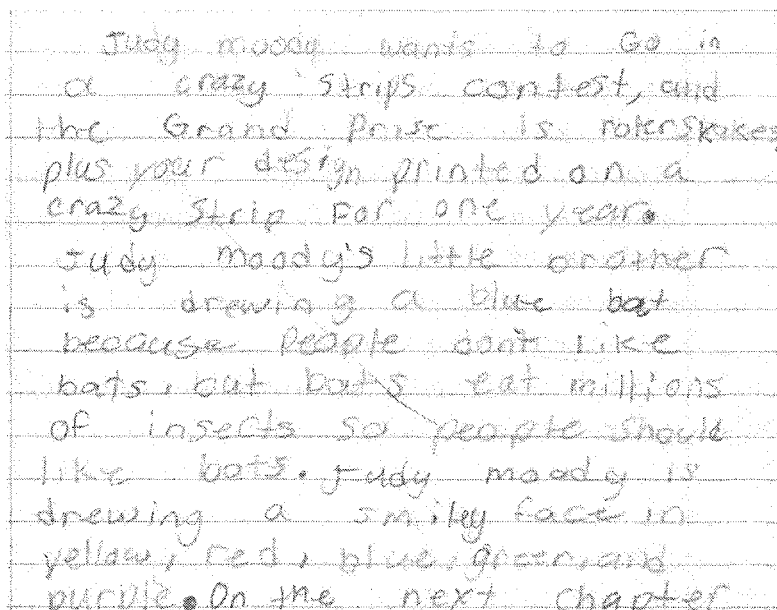 Judy moody wants to Go in
a crazy strips contest, and
the Grand Prize is rolerskakes
plus your design printed on a
crazy strip For one year.
Judy moody's little brother
is drewing a blue bat
beacause people dont like
bats, but bats eat millions
of inserts so people should
like bats. Judy moody is
drewing a smiley face in
yellow, red, blue, green, and
purple. On the next chapter